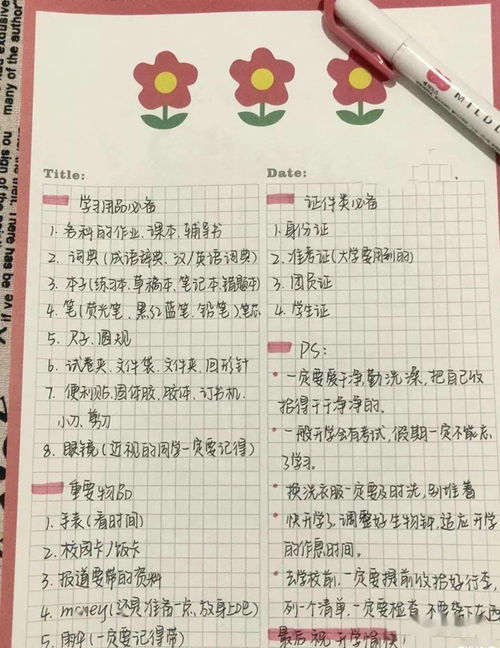 exclusive
many of the author
no sign of the
them. There has
if ve be
MILDL
Title:
学习用品必备
1. 各科的作业、课本、辅导书
2. 词典(成语辞典、汉/英语词典)
3. 本子(练习本、草稿本、笔记本、错题本)
4. 笔(荧光笔、黑红蓝笔、铅笔)笔芯
5. 尺子、圆规
6. 试卷夹、文件袋、文件夹、回形针
7. 便利贴、固体胶、胶体、订书机、
小刀、剪刀
8. 眼镜(近视的同学一定要记得)
重要物品
1. 手表(看时间)
2. 校园卡/饭卡
3. 报道要带的资料
4. money(还是准备一点,放身上吧)
5. 雨伞(一定要记得带)
Date:
证件类必备
1. 身份证
2. 准考证(大学要用到的)
3. 团员证
4. 学生证
PS:
· 一定要爱干净,勤洗澡,把自己收
拾得干干净净的.
· 一般开学会有考试,假期一定不能忘
了学习.
· 换洗衣服一定要及时洗,别堆着
· 快开学了,调整好生物钟,适应开学
的作息时间.
· 去学校前,一定要提前收拾好行李,
列一个清单,一定要检查,不要落下东西
最后祝开学愉快!